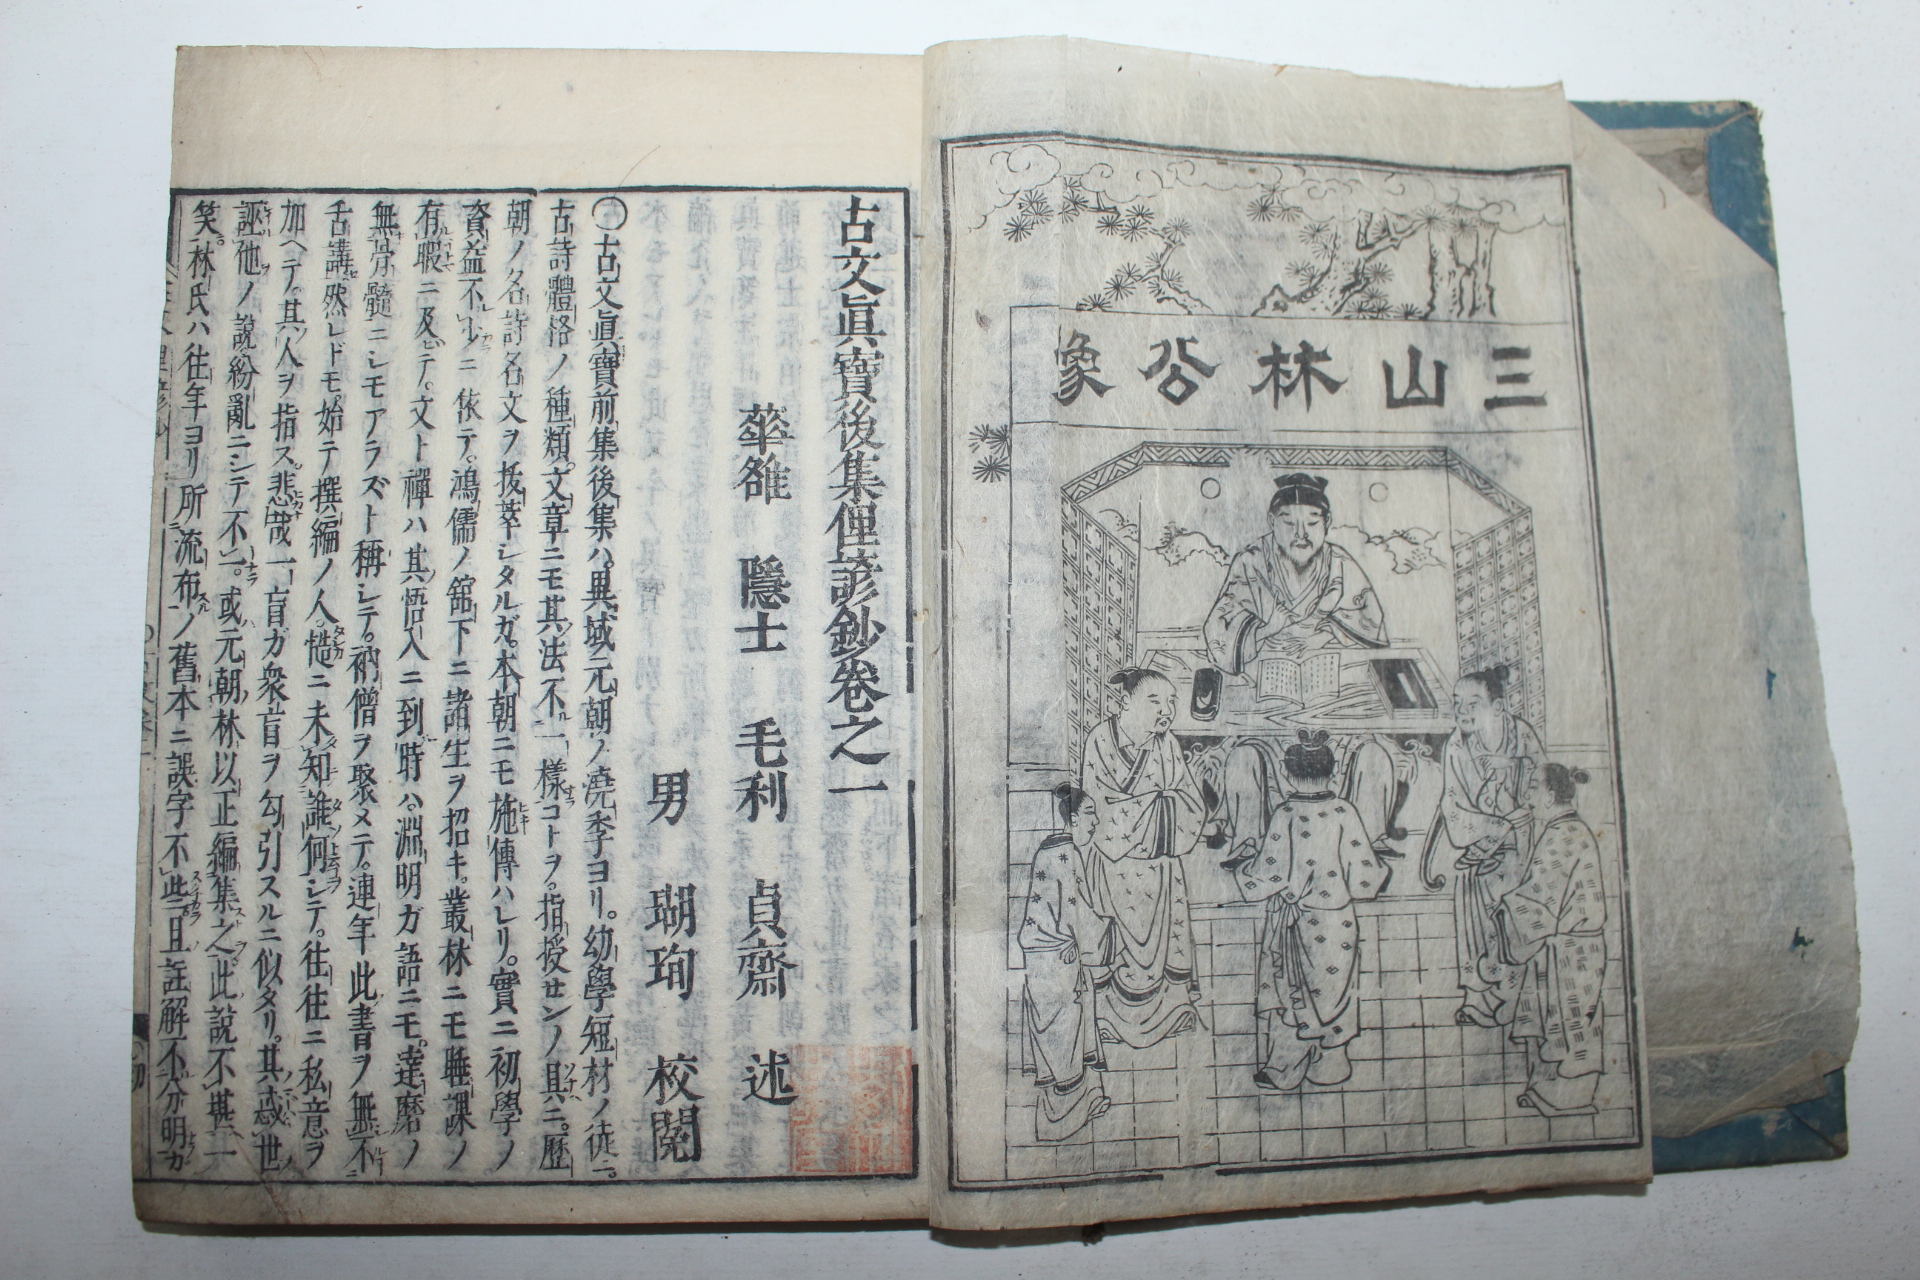 三山林公像
古文眞寶後集俚諺鈔卷之一
華雒 隱士 毛利 貞齋 述
男 瑚珣 校閲
〇古文眞寶前集後集ハ。異域元朝ノ澆季ヨリ。幼學短材ノ徒ニ。
古詩體格ノ種類。文章ニモ其法不一樣コトヲ。指授センノ具ニ。歷
朝ノ名詩名文ヲ拔萃シタルガ。本朝ニモ施傳ハレリ。實ニ初學ノ
資益不少ニ依テ。鴻儒ノ舘下ニ諸生ヲ招キ。叢林ニモ睡課ノ
有暇ニ及テ。文ト禪ハ其悟入ニ到時ハ。淵明ガ語ニモ。達磨ノ
無骨髓ニシモアラズト稱シテ。衲僧ヲ聚メテ。連年此書ヲ無不
舌講。然レドモ。始テ撰編ノ人。慥ニ未知誰何シテ。往往ニ私意ヲ
加ヘテ。其人ヲ指ス。悲哉一盲ガ衆盲ヲ勾引スルニ似タリ。其惑世
誣他ノ說紛亂ニシテ不一。或元朝林以正編集之。此說不甚
笑。林氏ハ往年ヨリ所流布ノ舊本ニ誤字不些。且註解不分明カ